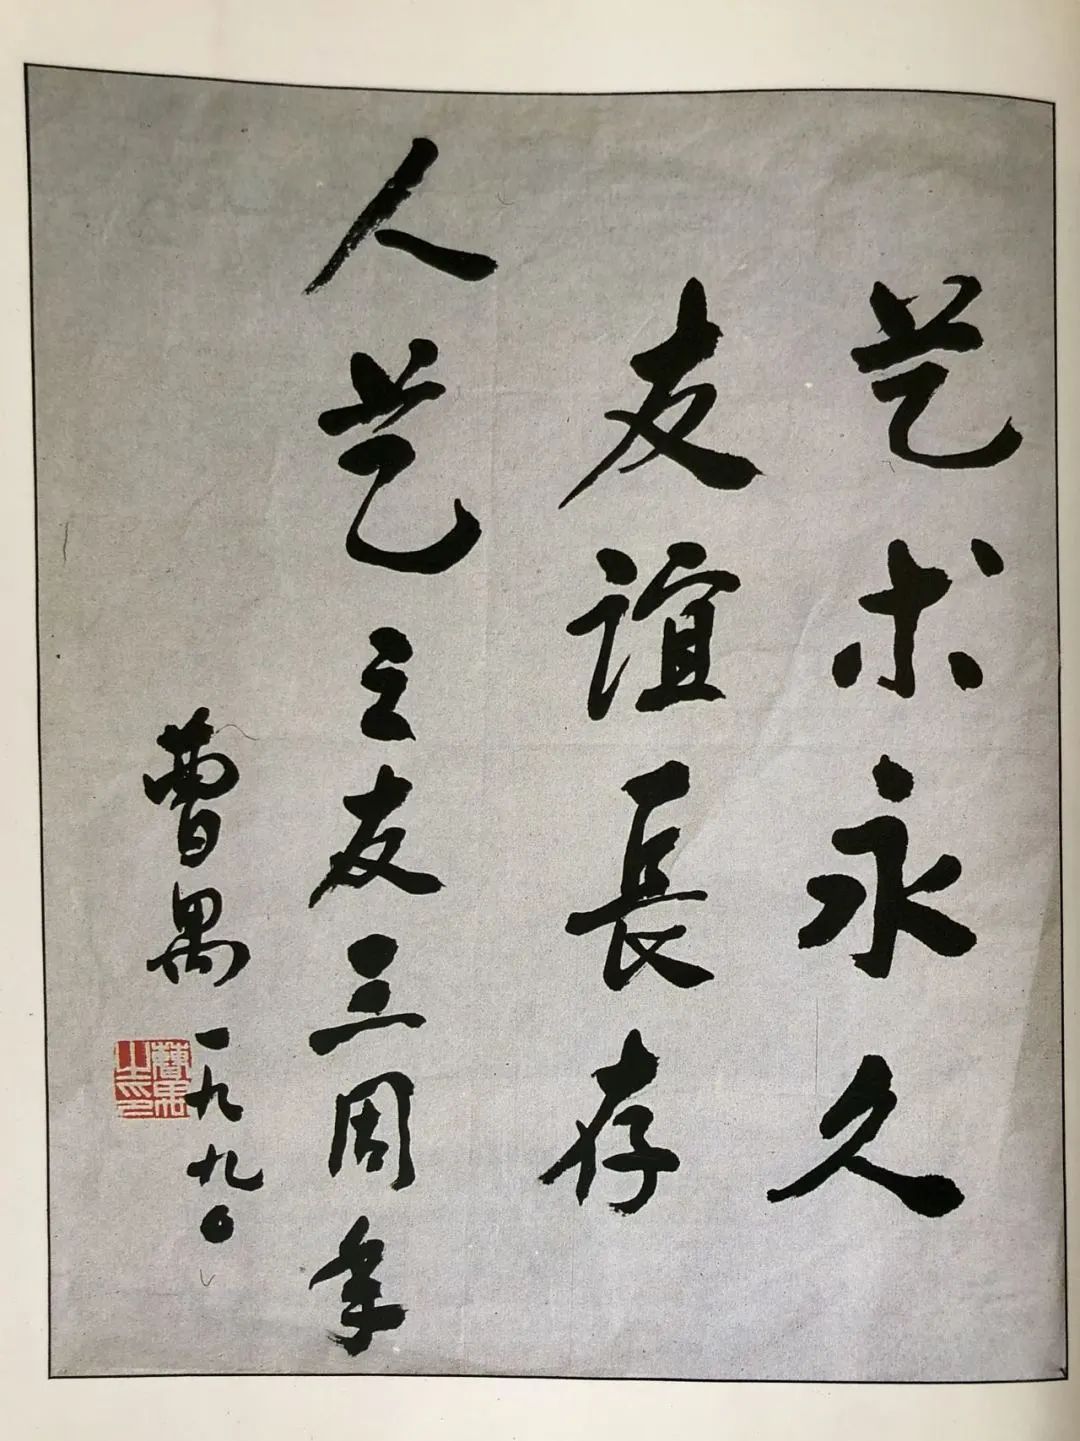 艺术永久
友谊長存
人艺之友三周年
曹禺 一九九〇
曹禺
之印